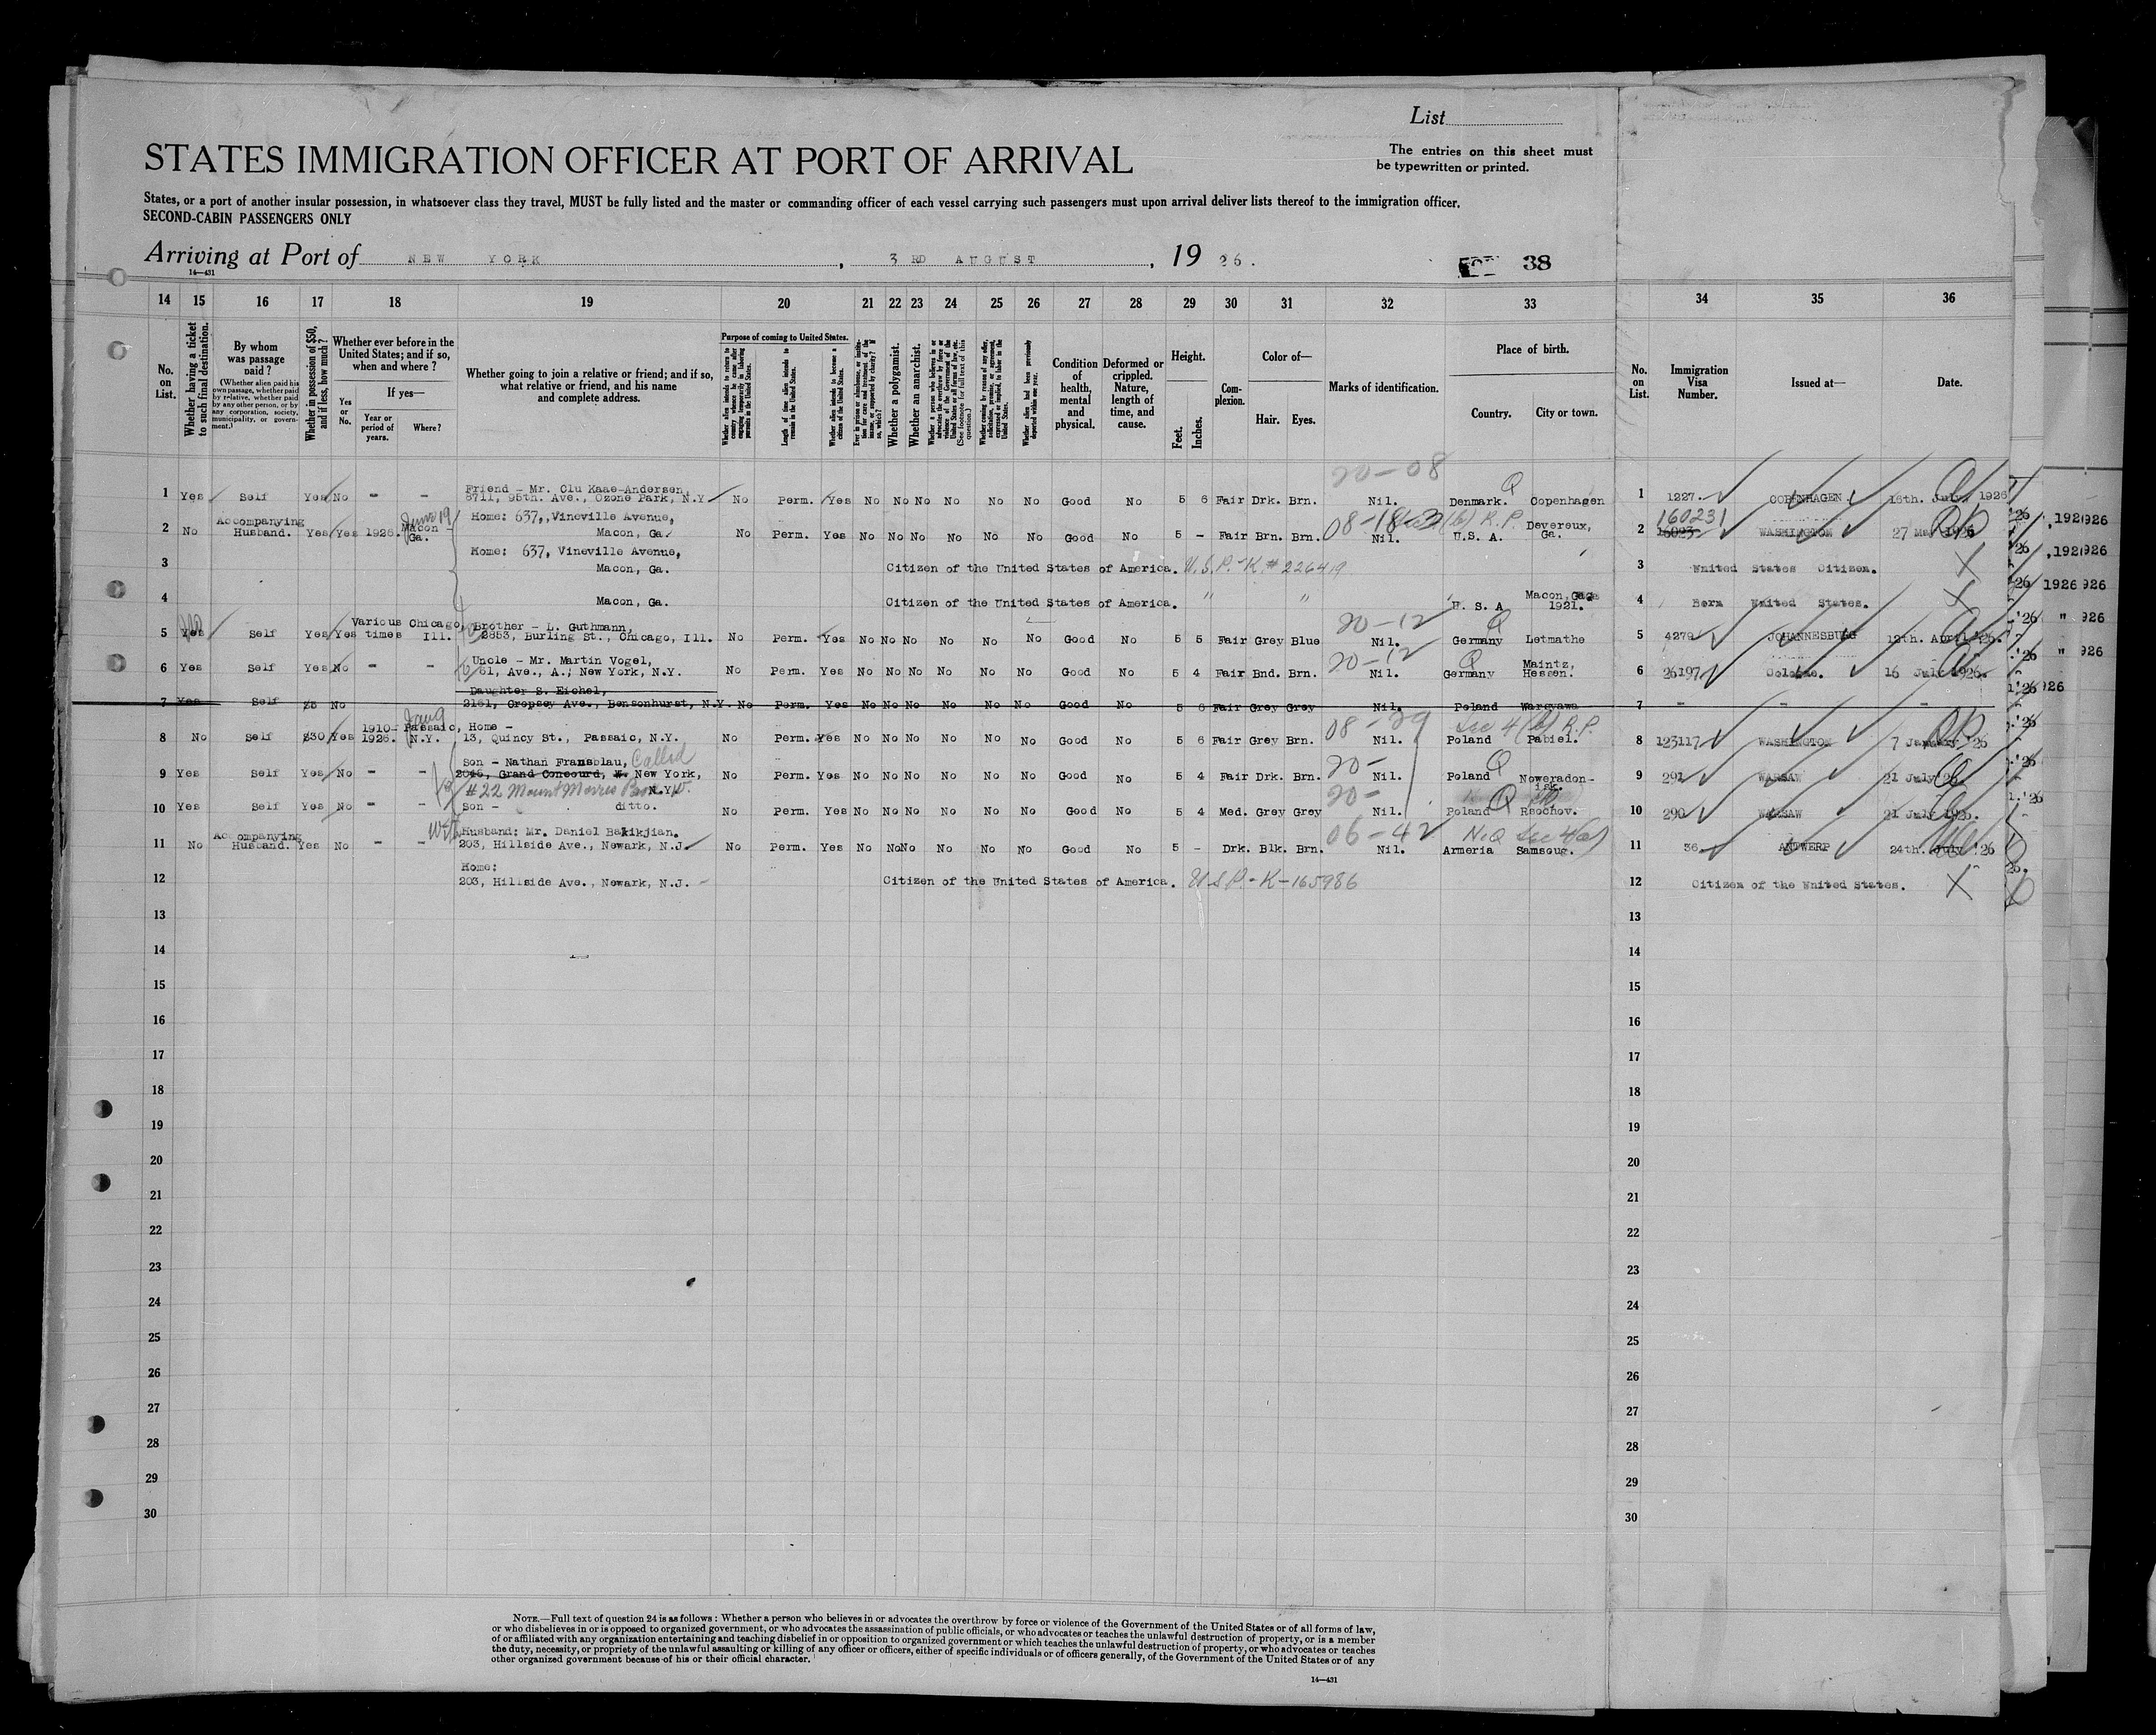 List
The entries on this sheet must
be typewritten or printed.
STATES IMMIGRATION OFFICER AT PORT OF ARRIVAL
States, or a port of another insular possession, in whatsoever class they travel, MUST be fully listed and the master or commanding officer of each vessel carrying such passengers must upon arrival deliver lists thereof to the immigration officer.
SECOND-CABIN PASSENGERS ONLY
Arriving at Port of NEW YORK, 3RD AUGUST, 19 26. 38
14—431
14 15 16 17 18 19 20 21 22 23 24 25 26 27 28 29 30 31 32 33 34 35 36
No. on List.
Whether having a ticket to such final destination.
By whom was passage paid?
(Whether alien paid his own passage, whether paid by relative, whether paid by any other person, or by any corporation, society, municipality, or government.)
Whether in possession of $50, and if less, how much?
Whether ever before in the United States; and if so, when and where?
Yes or No.
If yes—
Year or period of years.
Where?
Whether going to join a relative or friend; and if so, what relative or friend, and his name and complete address.
Purpose of coming to United States.
Whether alien intends to return to country whence he came after engaging temporarily in laboring pursuits in the United States.
Length of time alien intends to remain in the United States.
Whether alien intends to become a citizen of the United States.
Whether a polygamist.
Whether an anarchist.
Condition of health, mental and physical.
Deformed or crippled. Nature, length of time, and cause.
Height.
Feet. Inches.
Complexion.
Color of—
Hair. Eyes.
Marks of identification.
Place of birth.
Country. City or town.
No. on List.
Immigration Visa Number.
Issued at—
Date.
20-08
1 Yes Self Yes No - - Friend - Mr. Clu Kaae-Andersen, 8711, 95th. Ave., Ozone Park, N.Y. No Perm. Yes No No No No No No Good No 5 6 Fair Drk. Brn. Nil. Denmark. Copenhagen 1 1227. COPENHAGEN. 16th. July 1926
2 No Accompanying Husband. Yes Yes 1926. June 19 Macon - Ga. Home: 637, Vineville Avenue, Macon, Ga. No Perm. Yes No No No No No No Good No 5 - Fair Brn. Brn. Nil. 4(b) R.P. U.S. A. Devereux, Ga. 2 160231 16023 WASHINGTON 27 May 1926
3 Home: 637, Vineville Avenue, Macon, Ga. Citizen of the United States of America. U.S.P.-K # 226419 3 United States Citizen. X
4 Macon, Ga. Citizen of the United States of America. " " U. S. A Macon, Ga. 1921. 4 Born United States. X
20-12
5 Yes No Self Yes Yes Various times Chicago, Ill. Brother - L. Guthmann, 2853, Burling St., Chicago, Ill. No Perm. Yes No No No No No No Good No 5 5 Fair Grey Blue Nil. Germany Letmathe 5 4279 JOHANNESBURG 12th. April '26.
20-12
6 Yes Self Yes No - - Uncle - Mr. Martin Vogel, 61, Ave., A., New York, N.Y. No Perm. Yes No No No No No No Good No 5 4 Fair Bnd. Brn. Nil. Germany Maintz, Hessen. 6 26197 Cologne. 16 July 1926.
7 Yes Self No Daughter S. Eichel, 2151, Cropsey Ave., Bensonhurst, N.Y. No Perm. Yes No No No No No No Good No 5 6 Fair Grey Grey Nil. Poland Warsyawa 7 - - -
08-29 Sec 4(b) R.P.
8 No Self $30 Yes 1910- 1926. Passaic, N.Y. Home - 13, Quincy St., Passaic, N.Y. No Perm. Yes No No No No No No Good No 5 6 Fair Grey Brn. Nil. Poland Pabiel. 8 123117 WASHINGTON 7 January '26
20-
9 Yes Self Yes No - - Son - Nathan Fransblau, Called 2045, Grand Concourd, New York, N.Y. #22 Mount Morris No Perm. Yes No No No No No No Good No 5 4 Fair Drk. Brn. Nil. Poland Noweradon-isk. 9 291 WARSAW 21 July '26.
20-
10 Yes Self Yes No - - Son - ditto. No Perm. Yes No No No No No No Good No 5 4 Med. Grey Grey Nil. Poland Rsochov. 10 290 WARSAW 21 July 1926.
06-42 NQ Sec 4(a)
11 No Accompanying Husband. Yes No - - Husband: Mr. Daniel Balikjian. 203, Hillside Ave., Newark, N.J. No Perm. Yes No No No No No No Good No 5 - Drk. Blk. Brn. Nil. Armeria Samsoug. 11 36 ANTWERP 24th. July '26
12 Home: 203, Hillside Ave., Newark, N.J. - Citizen of the United States of America. USP-K-165986 12 Citizen of the United States. X
13 13
14 14
15 15
16 16
17 17
18 18
19 19
20 20
21 21
22 22
23 23
24 24
25 25
26 26
27 27
28 28
29 29
30 30
NOTE.—Full text of question 24 is as follows: Whether a person who believes in or advocates the overthrow by force or violence of the Government of the United States or of all forms of law,
or who disbelieves in or is opposed to organized government, or who advocates the assassination of public officials, or who advocates or teaches the unlawful destruction of property, or is a member
of or affiliated with any organization entertaining and teaching disbelief in or opposition to organized government or which teaches the unlawful destruction of property, or who advocates or teaches
the duty, necessity, or propriety of the unlawful assaulting or killing of any officer or officers, either of specific individuals or of officers generally, of the Government of the United States or of any
other organized government because of his or their official character.
14—431